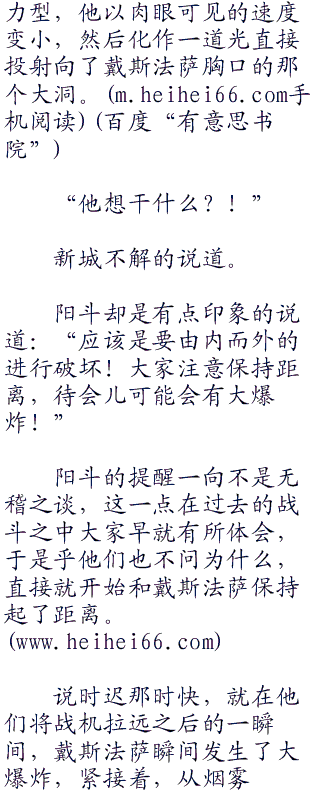 力型，他以肉眼可见的速度
变小，然后化作一道光直接
投射向了戴斯法萨胸口的那
个大洞。(m.heihei66.com手
机阅读)(百度“有意思书
院”)
“他想干什么？！”
新城不解的说道。
阳斗却是有点印象的说
道：“应该是要由内而外的
进行破坏！大家注意保持距
离，待会儿可能会有大爆
炸！”
阳斗的提醒一向不是无
稽之谈，这一点在过去的战
斗之中大家早就有所体会，
于是乎他们也不问为什么，
直接就开始和戴斯法萨保持
起了距离。
(www.heihei66.com)
说时迟那时快，就在他
们将战机拉远之后的一瞬
间，戴斯法萨瞬间发生了大
爆炸，紧接着，从烟雾